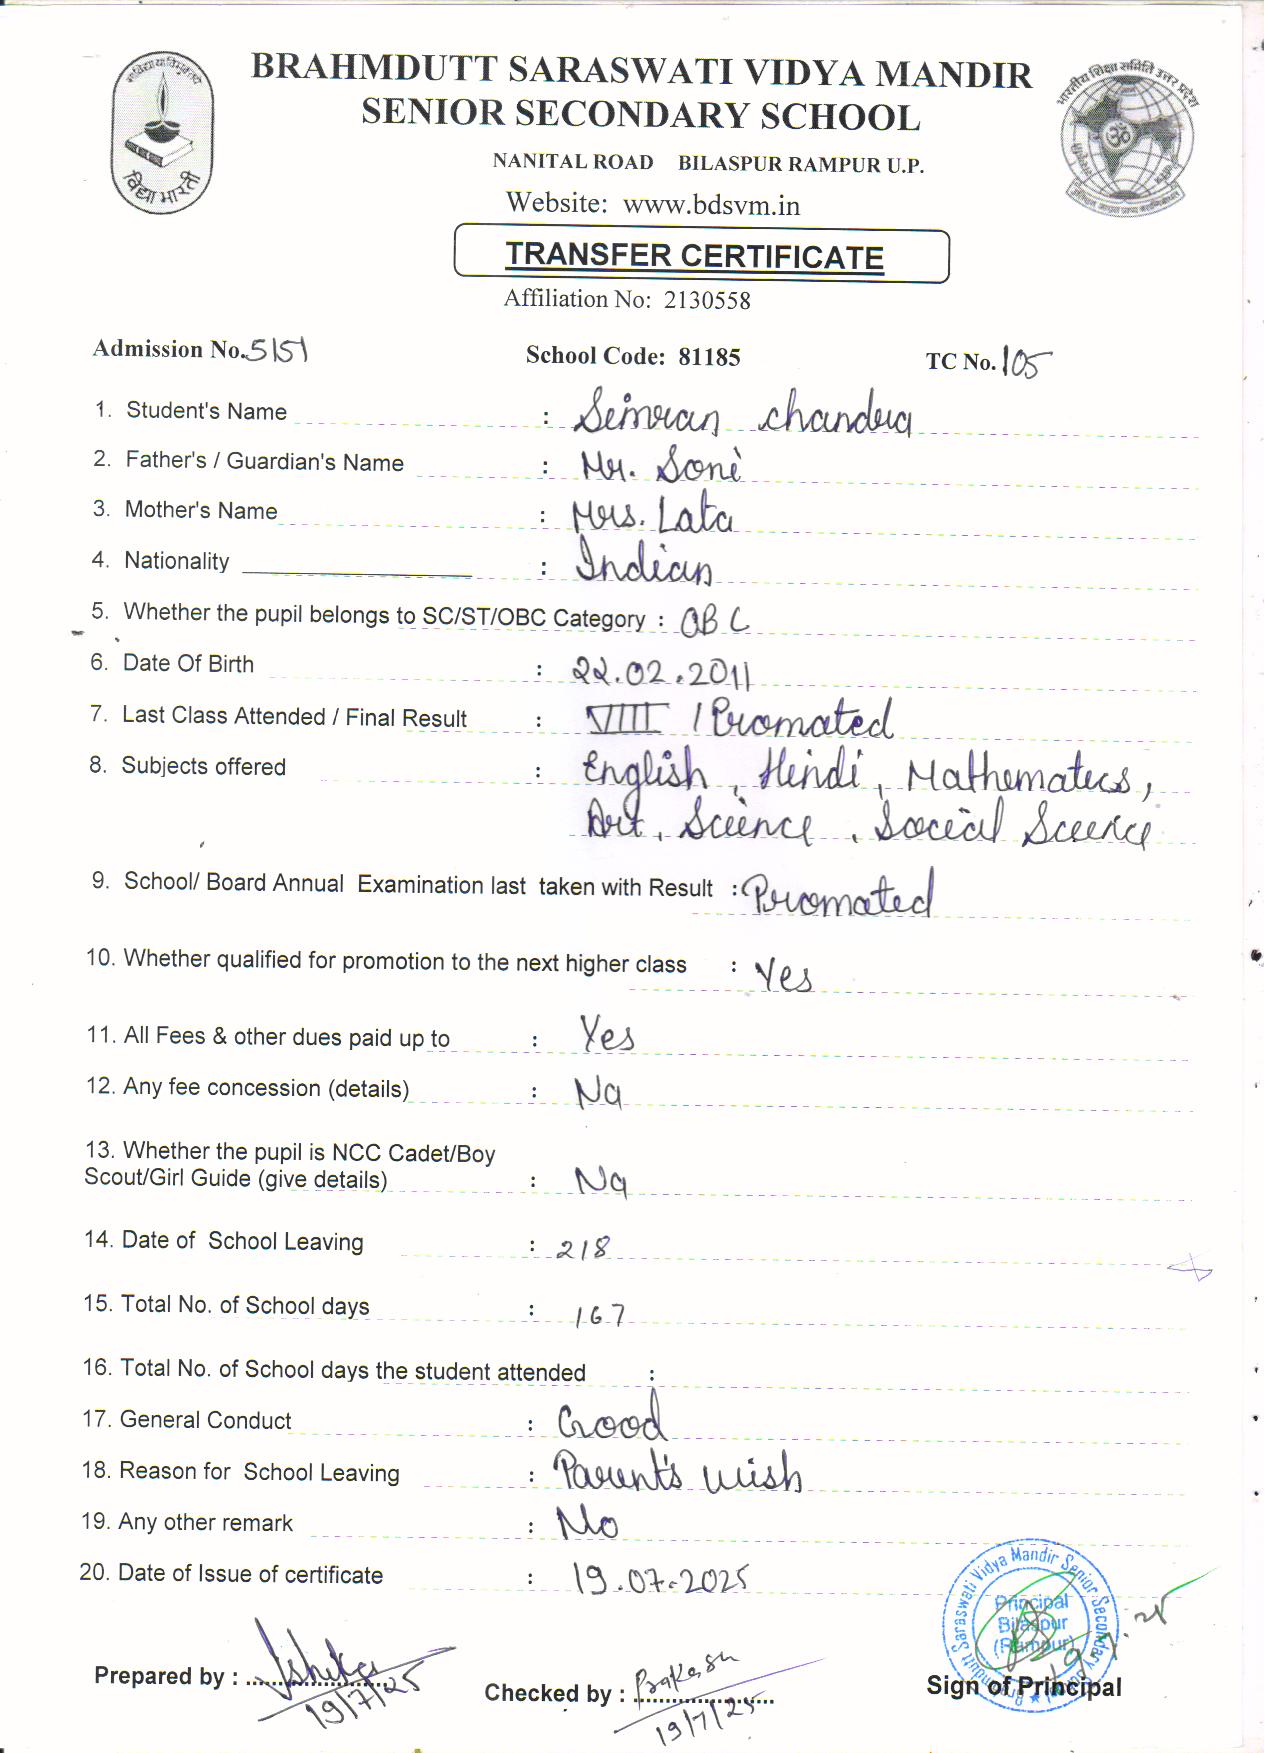 BRAHMDUTT SARASWATI VIDYA MANDIR
SENIOR SECONDARY SCHOOL
NANITAL ROAD BILASPUR RAMPUR U.P.
Website: www.bdsvm.in
विद्या भारती
भारतीय शिक्षा समिति उत्तर प्रदेश
TRANSFER CERTIFICATE
Affiliation No: 2130558
Admission No. 5151 School Code: 81185 TC No. 105
1. Student's Name : Simran Chandra
2. Father's / Guardian's Name : Mr. Soni
3. Mother's Name : Mrs. Lata
4. Nationality : Indian
5. Whether the pupil belongs to SC/ST/OBC Category : OBC
6. Date Of Birth : 22.02.2011
7. Last Class Attended / Final Result : VIII / Promated
8. Subjects offered : English, Hindi, Mathematics,
Art, Science, Social Science
9. School/ Board Annual Examination last taken with Result : Promated
10. Whether qualified for promotion to the next higher class : Yes
11. All Fees & other dues paid up to : Yes
12. Any fee concession (details) : No
13. Whether the pupil is NCC Cadet/Boy
Scout/Girl Guide (give details) : No
14. Date of School Leaving : 218
15. Total No. of School days : 167
16. Total No. of School days the student attended :
17. General Conduct : Good
18. Reason for School Leaving : Parent's wish
19. Any other remark : No
20. Date of Issue of certificate : 19.07.2025
Brahmdutt Saraswati Vidya Mandir Senior Secondary
Principal
Bilaspur
(Rampur)
Prepared by : Ishika
19/7/25
Checked by : Prakash
19/7/25
Sign of Principal